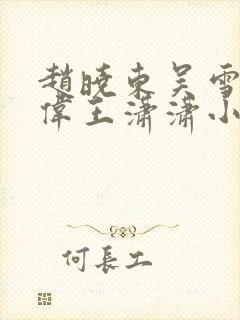 趙曉東吳雪
偉王瀟瀟小
何長工